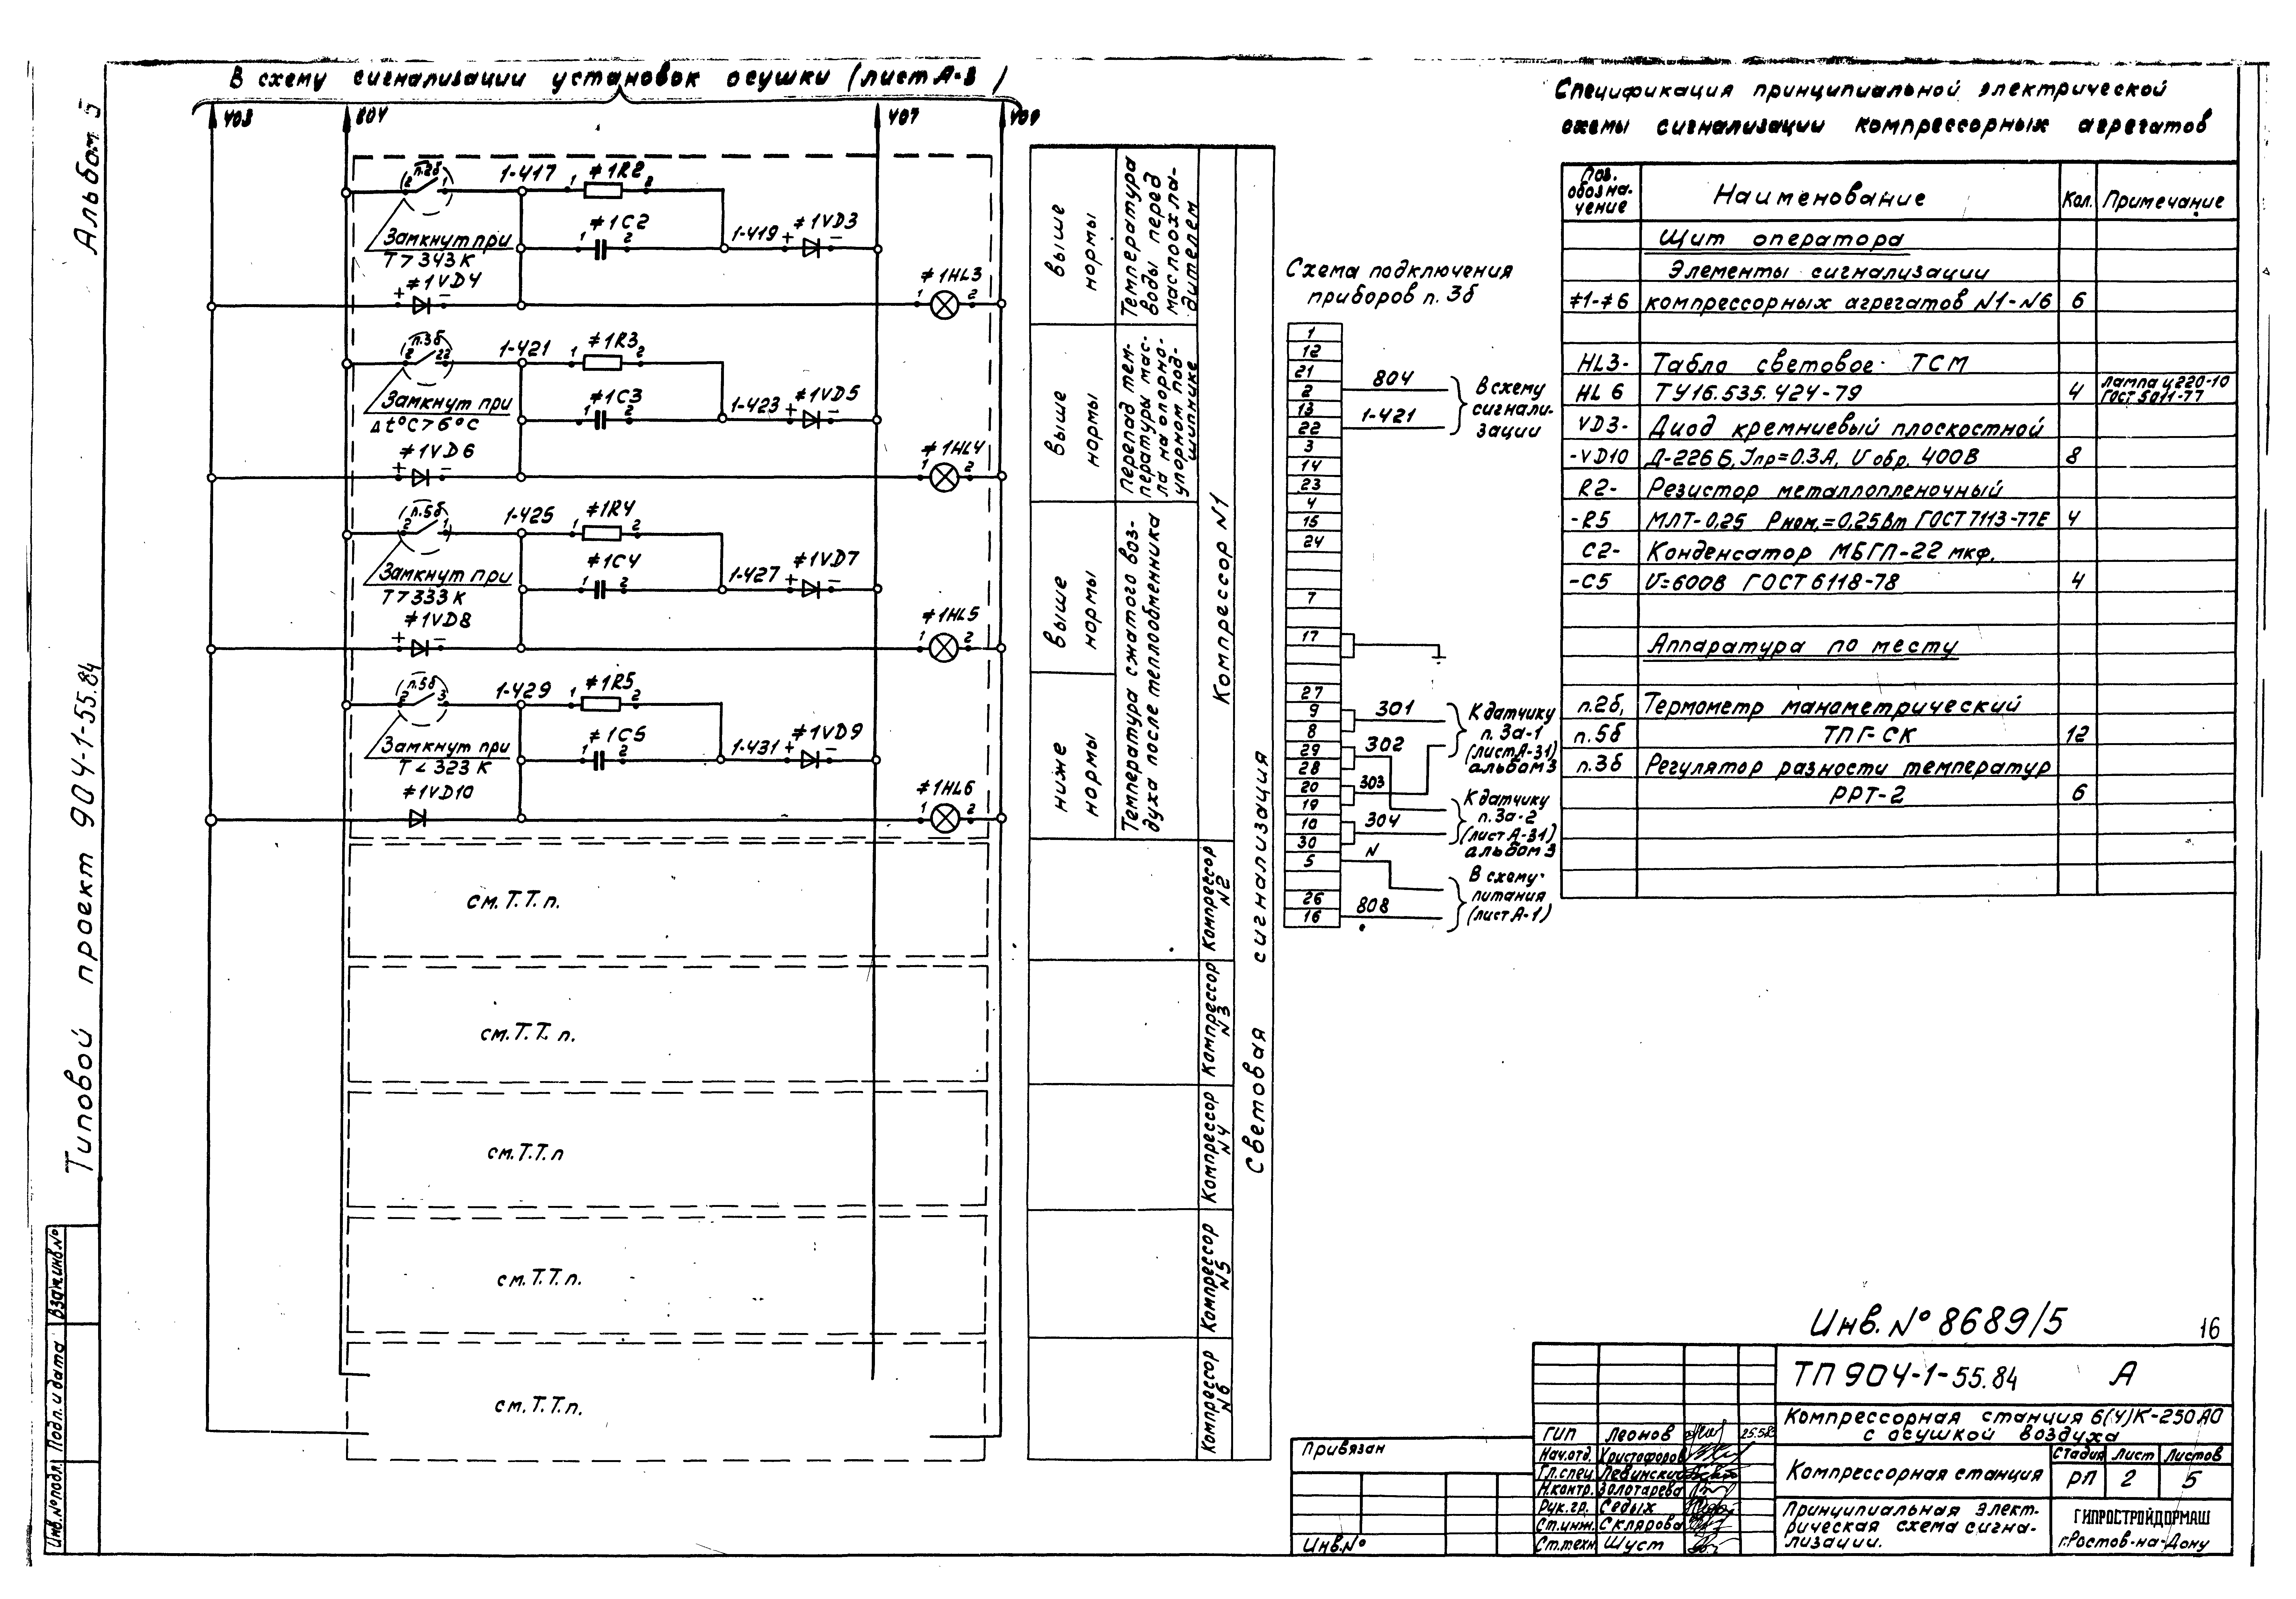 В схему сигнализации установок осушки (лист А-3 )
403
804
407
409
п.2б
2
1
1-417
1
≠1R2
2
≠1C2
1
2
1-419
+
≠1VD3
−
Замкнут при
Т>343К
≠1VD4
+
−
≠1HL3
1
2
п.3б
2
22
1-421
1
≠1R3
2
≠1C3
1
2
1-423
+
≠1VD5
−
Замкнут при
Δt°C>6°C
≠1VD6
+
−
≠1HL4
1
2
п.5б
2
1
1-425
1
≠1R4
2
≠1C4
1
2
1-427
+
≠1VD7
−
Замкнут при
Т>333К
≠1VD8
+
−
≠1HL5
1
2
п.5б
2
3
1-429
1
≠1R5
2
≠1C5
1
2
1-431
+
≠1VD9
−
Замкнут при
Т<323К
≠1VD10
≠1HL6
1
2
см.Т.Т.п.
см.Т.Т.п.
см.Т.Т.п
см.Т.Т.п.
см.Т.Т.п.
выше
нормы
Температура
воды перед
маслоохла-
дителем
выше
нормы
Перепад тем-
пературы мас-
ла на опорно-
упорном под-
шипнике
выше
нормы
ниже
нормы
Температура сжатого воз-
духа после теплообменника
Компрессор N1
Компрессор
N2
Компрессор
N3
Компрессор
N4
Компрессор
N5
Компрессор
N6
Световая сигнализация
Схема подключения
приборов п. 3б
1
12
21
2
13
22
3
14
23
4
15
24
7
17
27
9
8
29
28
20
19
10
30
5
26
16
804
1-421
В схему
сигнали-
зации
301
302
303
304
N
808
К датчику
п. 3а-1
(лист А-31)
альбом 3
К датчику
п. 3а-2
(лист А-31)
альбом 3
В схему
питания
(лист А-1)
Спецификация принципиальной электрической
схемы сигнализации компрессорных агрегатов
Поз.
обозна-
чение
Наименование
Кол.
Примечание
Щит оператора
Элементы сигнализации
≠1-≠6 компрессорных агрегатов N1-N6 6
HL3- Табло световое ТСМ
HL 6 ТУ16.535.424-79 4
лампа Ц220-10
ГОСТ 5011-77
VD3- Диод кремниевый плоскостной
-VD10 Д-226 Б, Iпр=0.3А, U обр. 400В 8
R2- Резистор металлопленочный
-R5 МЛТ-0,25 Рном.=0,25Вт ГОСТ 7113-77Е 4
C2- Конденсатор МБГП-22 мкф.
-C5 U=600В ГОСТ 6118-78 4
Аппаратура по месту
п.2б, Термометр манометрический
п.5б ТПГ-СК 12
п.3б Регулятор разности температур
РРТ-2 6
Альбом 5
Типовой проект 904-1-55.84
Взам.инв.№
Подп. и дата
Инв.№ подл.
Инв.№ 8689/5
16
ТП 904-1-55.84 А
Компрессорная станция 6(4)К-250АО
с осушкой воздуха
Компрессорная станция
Стадия Лист Листов
РП 2 5
Принципиальная элект-
рическая схема сигна-
лизации.
ГИПРОСТРОЙДОРМАШ
г.Ростов-на-Дону
ГИП Леонов
Нач.отд. Христофоров
Гл.спец. Левинский
Н.контр. Золотарева
Рук.гр. Седых
Ст.инж. Склярова
Ст.техн Шуст
Привязан
Инв.№